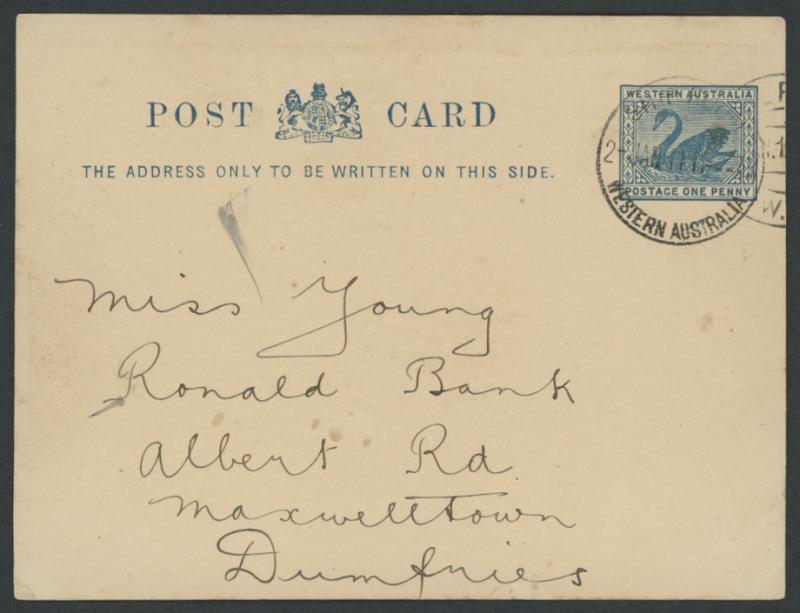 POST CARD
THE ADDRESS ONLY TO BE WRITTEN ON THIS SIDE.
WESTERN AUSTRALIA
POSTAGE ONE PENNY
WESTERN AUSTRALIA
W.
Miss Young
Ronald Bank
Albert Rd
Maxwelltown
Dumfries